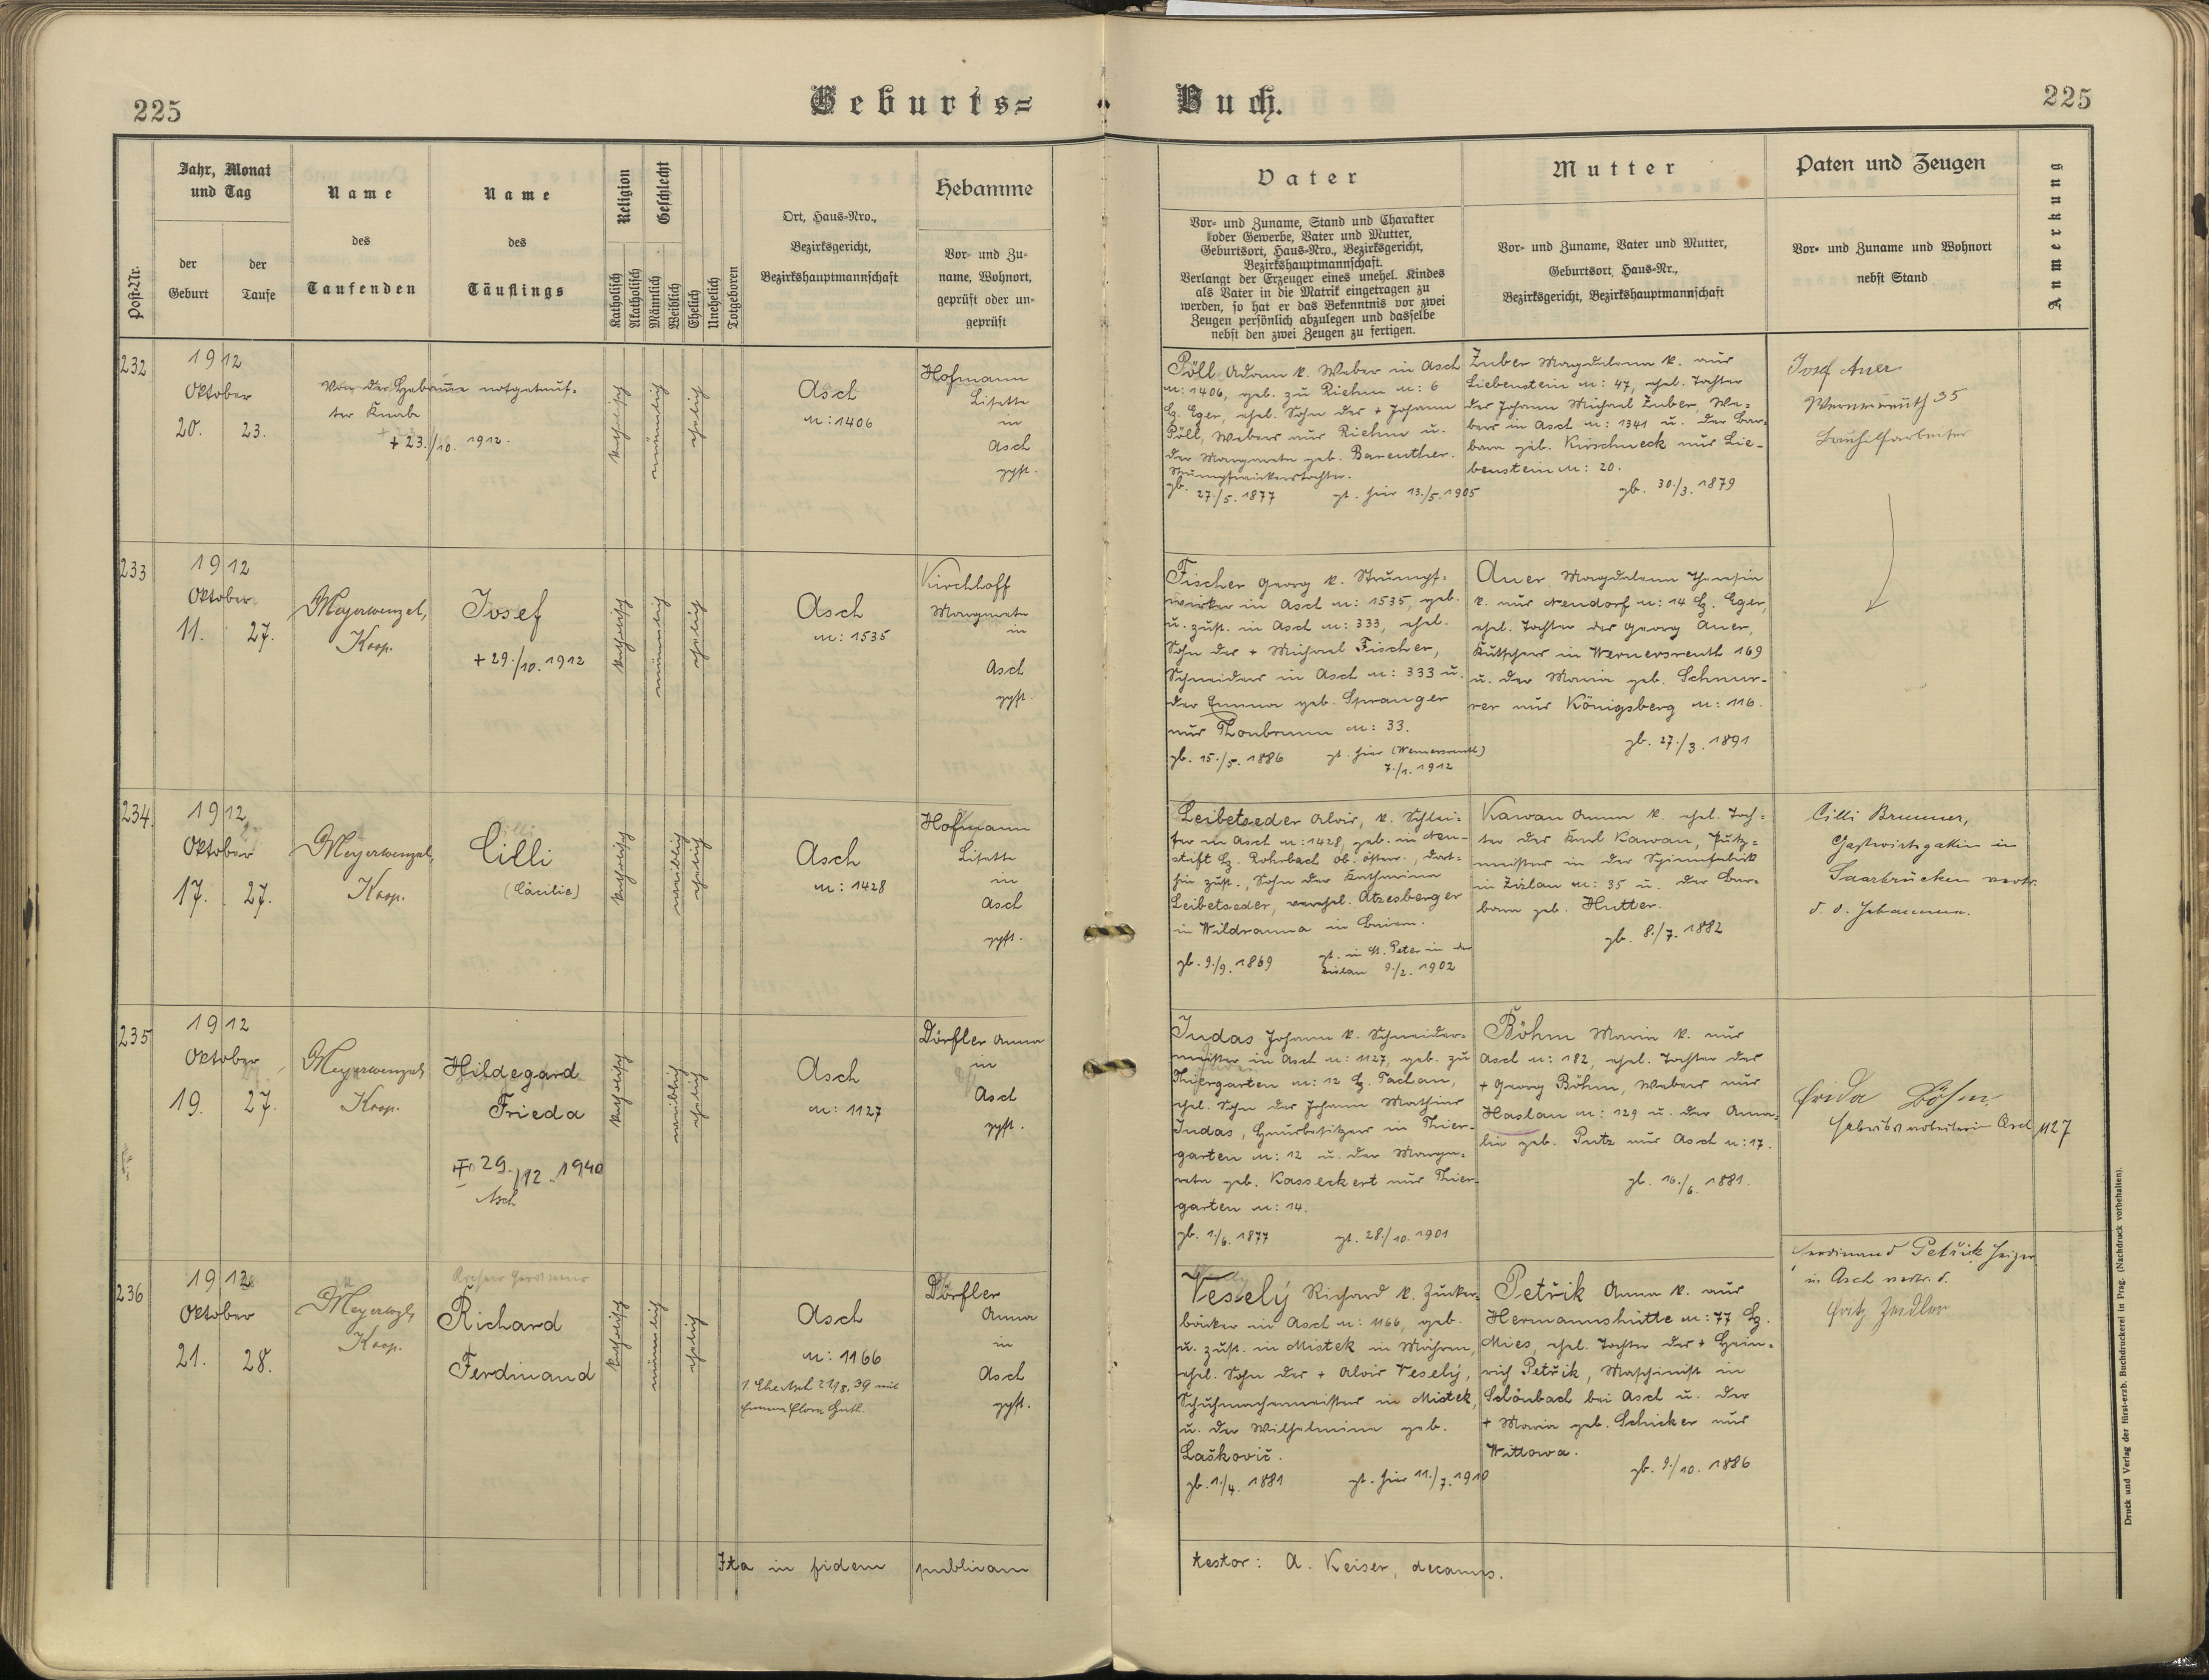 225
Geburts=
Buch.
225
Post-Nr.
Jahr, Monat
und Tag
der
Geburt
der
Taufe
Name
des
Taufenden
Name
des
Täuflings
Religion
Katholisch
Akatholisch
Geschlecht
Männlich
Weiblich
Ehelich
Unehelich
Totgeboren
Ort, Haus-Nro.,
Bezirksgericht,
Bezirkshauptmannschaft
Hebamme
Vor- und Zu-
name, Wohnort,
geprüft oder un-
geprüft
Vater
Vor- und Zuname, Stand und Charakter
oder Gewerbe, Vater und Mutter,
Geburtsort, Haus-Nro., Bezirksgericht,
Bezirkshauptmannschaft.
Verlangt der Erzeuger eines unehel. Kindes
als Vater in die Matrik eingetragen zu
werden, so hat er das Bekenntnis vor zwei
Zeugen persönlich abzulegen und dasselbe
nebst den zwei Zeugen zu fertigen.
Mutter
Vor- und Zuname, Vater und Mutter,
Geburtsort, Haus-Nr.,
Bezirksgericht, Bezirkshauptmannschaft
Paten und Zeugen
Vor- und Zuname und Wohnort
nebst Stand
Anmerkung
232
1912
Oktober
20. 23.
Von der Hebamme notgetauf-
ter Knabe
+ 23./10. 1912.
katholisch
männlich
ehelich
Asch
n: 1406
Hofmann
Lisette
in
Asch
gpft.
Pöll Adam k. Weber in Asch
n: 1406, geb. zu Riehm n: 6
Bz. Eger, ehel. Sohn des + Johann
Pöll, Webers aus Riehm u.
der Margareta geb. Bareuther.
Strumpfwirkerstochter.
gb. 27./5. 1877 gt. hier 13./5. 1905
Zuber Magdalena k. aus
Liebenstein n: 47, ehel. Tochter
des Johann Michael Zuber, We-
bers in Asch n: 1341 u. der Bar-
bara geb. Kirschneck aus Lie-
benstein n: 20.
gb. 30./3. 1879
Josef Auer
Wernersreuth 35
Bauhilfarbeiter
233
1912
Oktober
11. 27.
Meyerwenzel,
Koop.
Josef
+ 29./10. 1912
katholisch
männlich
ehelich
Asch
n: 1535
Kirchhoff
Margareta
in
Asch
gpft.
Fischer Georg k. Strumpf-
wirker in Asch n: 1535, geb.
u. zust. in Asch n: 333, ehel.
Sohn des + Michael Fischer,
Schneiders in Asch n: 333 u.
der Emma geb. Spranger
aus Thonbrunn n: 33.
gb. 15./5. 1886 gt. hier (Wernersreuth)
7./1. 1912
Auer Magdalena Theresia
k. aus Neudorf n: 14 Bz. Eger,
ehel. Tochter des Georg Auer,
Kutschers in Wernersreuth 169
u. der Maria geb. Schnur-
rer aus Königsberg n: 116.
gb. 27./3. 1891
234.
1912
Oktober
17. 27.
Meyerwenzel,
Koop.
Cilli
(Cäcilie)
katholisch
weiblich
ehelich
Asch
n: 1428
Hofmann
Lisette
in
Asch
gpft.
Leibetseder Alois, k. Schlei-
fer in Asch n: 1428, geb. in Neu-
stift Bz. Rohrbach Ob. österr., dort-
hin zust., Sohn der Katharina
Leibetseder, verehel. Atzesberger
in Wildranna in Baiern.
gb. 9./9. 1869 gt. in St. Peter in der
Zizlau 9./2. 1902
Kawan Anna k. ehel. Toch-
ter des Karl Kawan, Putz-
meister in der Spinnfabrik
in Zizlau n: 35 u. der Bar-
bara geb. Hutter.
gb. 8./7. 1882
Cilli Brunner,
Gastwirtsgattin in
Saarbrücken vertr.
d. d. Hebamme.
235
1912
Oktober
19. 27.
Meyerwenzel
Koop.
Hildegard
Frieda
II 29./12. 1940
Asch
katholisch
weiblich
ehelich
Asch
n: 1127
Dörfler Anna
in
Asch
gpft.
Judas Johann k. Schneider-
meister in Asch n: 1127, geb. zu
Thiergarten n: 12 Bz. Tachau,
ehel. Sohn des Johann Mathias
Judas, Hausbesitzers in Thier-
garten n: 12 u. der Marga-
reta geb. Kasseckert aus Thier-
garten n: 14.
gb. 1./6. 1877 gt. 28./10. 1901
Böhm Maria k. aus
Asch n: 182, ehel. Tochter des
+ Georg Böhm, Webers aus
Haslau n: 129 u. der Ama-
lia geb. Putz aus Asch n: 17.
gb. 16./6. 1881.
Frida Böhm
Fabriksarbeiterin Asch 1127
236
1912
Oktober
21. 28.
Meyerwzl,
Koop.
Richard
Ferdinand
katholisch
männlich
ehelich
Asch
n: 1166
1. Ehe Asch 21/8. 39 mit
Emma Flora Guth.
Dörfler
Anna
in
Asch
gpft.
Veselý Richard k. Zucker-
bäcker in Asch n: 1166, geb.
u. zust. in Mistek in Mähren,
ehel. Sohn des + Alois Veselý,
Schuhmachermeisters in Mistek,
u. der Wilhelmine geb.
Laškovič.
gb. 1./4. 1881 gt. hier 11./7. 1910
Petřik Anna k. aus
Hermannshütte n: 77 Bz.
Mies, ehel. Tochter des + Hein-
rich Petřik, Maschinist in
Schönbach bei Asch u. der
+ Maria geb. Schicker aus
Wittowa.
gb. 9./10. 1886
Ferdinand Petřik Heizer
in Asch vertr. d.
Fritz Zeidler
Ita in fidem publicam
testor: A. Keiser, decanus.
Druck und Verlag der fürst-erzb. Buchdruckerei in Prag. (Nachdruck vorbehalten).